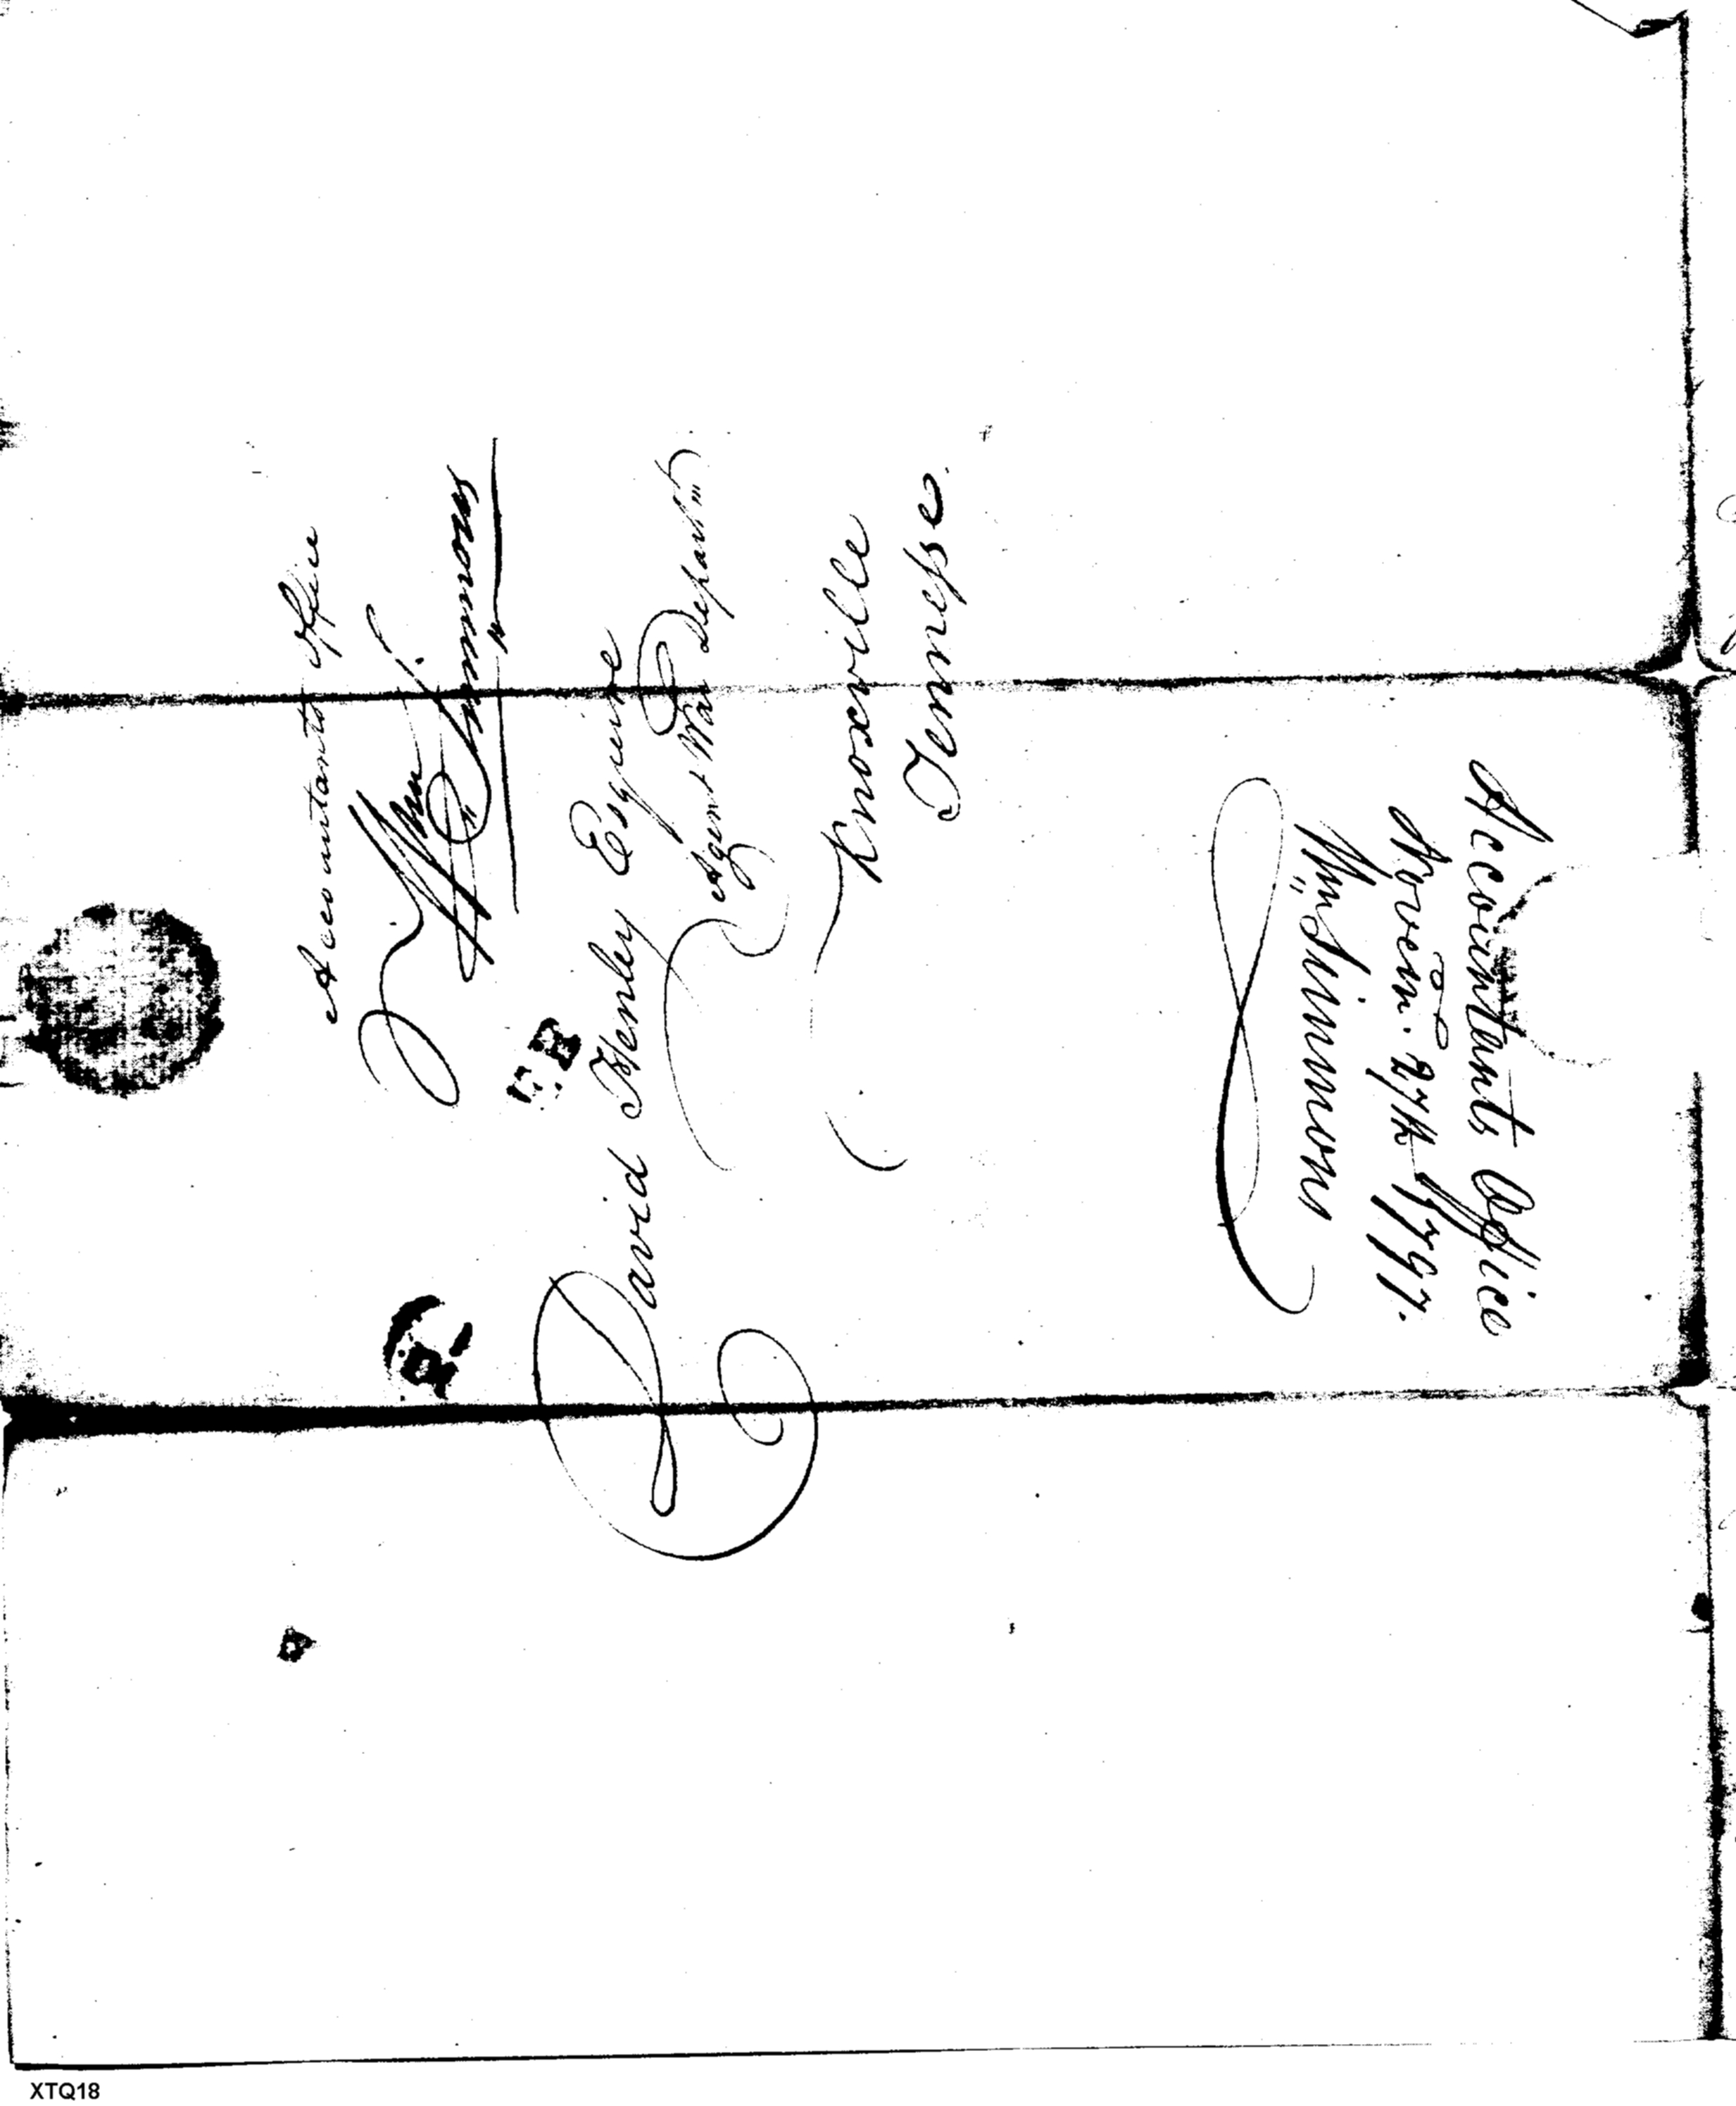 Accountants Office
Wm Simmons
David Henley Esquire
Agent War Departm
Knoxville
Tennessee.
Accountants Office
Novem. 27th 1797.
Wm Simmons
XTQ18